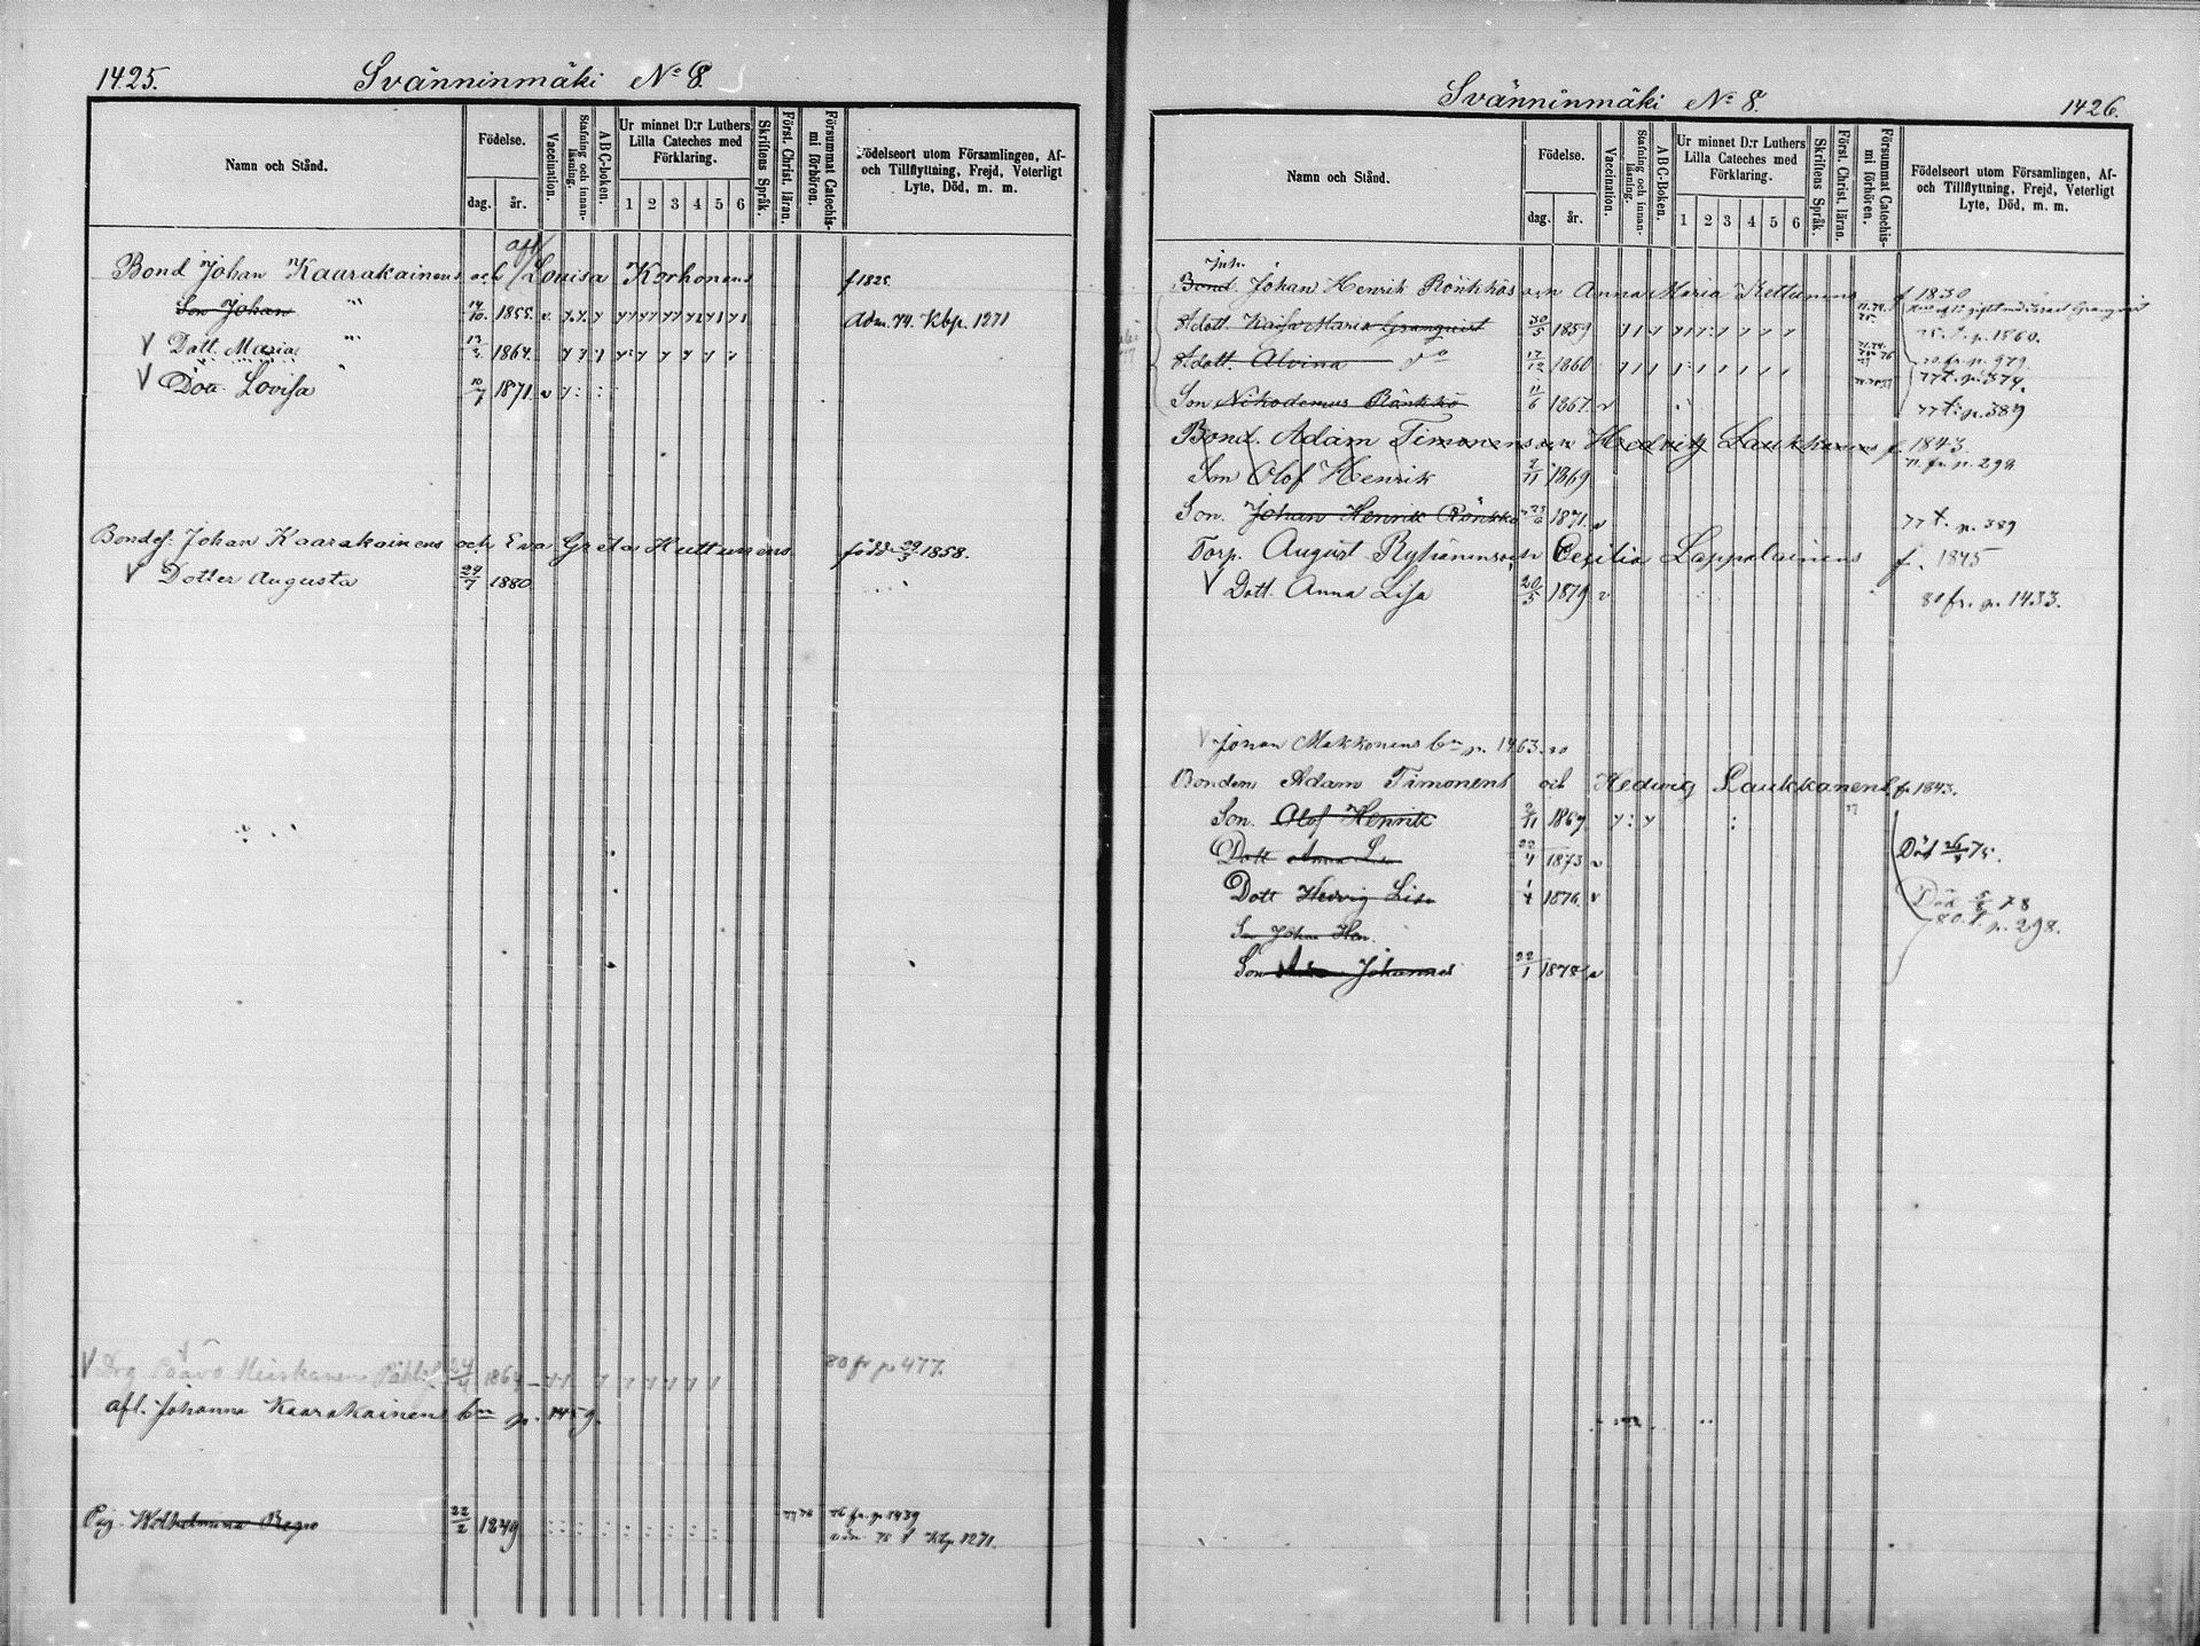 1425.
Svänninmäki No 8.
Namn och Stånd.
Födelse.
dag.
år.
Vaccination.
Stafning och innan-
läsning.
ABC-boken.
Ur minnet D:r Luthers
Lilla Cateches med
Förklaring.
1 2 3 4 5 6
Skriftens Språk.
Först. Christ. läran.
Försummat Catechis-
mi förhören.
Födelseort utom Församlingen, Af-
och Tillflyttning, Frejd, Veterligt
Lyte, Död, m. m.
afl/
Bond Johan Kaarakainens och Lovisa Korhonens f 1825
Son Johan " 14/10. 1855. v. Adm. 74. Kbp. 1271
V Dott. Maria " 1864.
V Dott. Lovisa " 10/7 1871. v
Bondes. Johan Kaarakainens och Eva Greta Huttunens född 29/3 1858.
V Dotter Augusta 29/7 1880
V Drg Paavo Meiskanen 24/4 186 80 fr p 477.
afl. Johanna Kaarakainens bn p. 1459.
Pig. Wilhelmina Repo 22/2 1849 77 78 76 fr. p. 1439
Kbp 1271.
Svänninmäki No 8.
1426.
Namn och Stånd.
Födelse.
dag.
år.
Vaccination.
Stafning och innan-
läsning.
ABC-Boken.
Ur minnet D:r Luthers
Lilla Cateches med
Förklaring.
1 2 3 4 5 6
Skriftens Språk.
Först. Christ. läran.
Försummat Catechis-
mi förhören.
Födelseort utom Församlingen, Af-
och Tillflyttning, Frejd, Veterligt
Lyte, Död, m. m.
Inh.
Bond. Johan Henrik Rönkkös och Anna Maria Kettunens f 1830
Adott. Kaisa Maria Granqvist 30/5 1859 gift med Israel Granqvist
75. t. p. 1860.
Adott. Alvina do 17/12 1860 70 fr. p. 979.
77 t. p. 374.
Son Nikodemus Rönkkö 11/6 1867. v 77 t. p. 389
Bond. Adam Timonens och Hedvig Laukkanens f. 1843
Son Olof Henrik 2/11 1869 71. fr. p. 298
Son. Johan Henrik Rönkkö 1871. v 77 t. p. 389
Torp. August Ryhänens och Cecilia Lappalainens f. 1845
V Dott. Anna Lisa 20/5 1879 v 80 fr. p. 1433.
V Johan Makkonens bn p. 1463.
Bonden Adam Timonens och Hedwig Laukkanens f. 1843.
Son. Olof Henrik 2/11 1869
Dott Anna 22/4 1873 v Död 75.
Dott Hedvig Lisa 1/4 1876. v Död 78
80. t. p. 298.
Son Johan Hen.
Son Johannes 22/1 1878 v